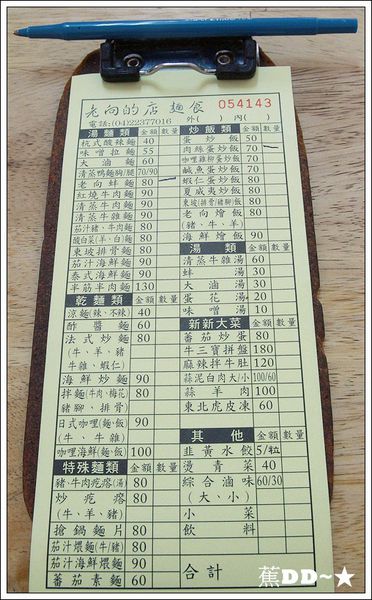 老向的店 麵食 054143
電話:(04)22377016 外( ) 內( )
湯麵類 金額 數量
杭式酸辣麵 40
味噌拉麵 55
大滷麵 60
清蒸鴨麵胸/腿 70/90
老向蚌麵 80
紅燒牛肉麵 80
清蒸牛肉麵 80
清蒸牛雜麵 90
茄汁豬.牛肉麵 80
酸白菜(羊.白)麵 80
東坡排骨麵 80
茄汁海鮮麵 90
泰式海鮮麵 90
半筋半肉麵 130
乾麵類 金額 數量
涼麵(辣、不辣) 40
酢醬麵 60
法式炒麵 80
(牛、羊、豬
牛雜、蝦仁)
海鮮炒麵 90
拌麵(牛肉、梅花) 80
豬腳、排骨)
日式咖哩(麵.飯) 90
(牛、牛雜)
咖哩海鮮(麵.飯) 100
特殊麵類 金額 數量
豬.牛肉疙瘩(湯) 80
炒疙瘩 80
(牛、羊、豬)
搶鍋麵片 80
茄汁煨麵(牛/豬) 80
茄汁海鮮煨麵 90
蕃茄素麵 60
炒飯類 金額 數量
蛋炒飯 50
肉絲蛋炒飯 70
咖哩雞柳蛋炒飯 70
鹹魚蛋炒飯 70
蝦仁蛋炒飯 80
夏威夷炒飯 80
東坡(排骨/豬腳)飯 80
老向燴飯 80
(豬、牛、羊)
海鮮燴飯 90
湯類 金額 數量
清蒸牛雜湯 60
蚌湯 30
大滷湯 30
蛋花湯 20
味噌湯 10
新新大菜 金額 數量
蕃茄炒蛋 80
牛三寶拼盤 180
麻辣拌牛肚 120
蒜泥白肉大/小 100/60
蒜羊肉 100
東北虎皮凍 60
其他 金額 數量
韭黃水餃 5/粒
燙青菜 40
綜合滷味 60/30
(大、小)
小菜
飲料
合計
蕉DD~★